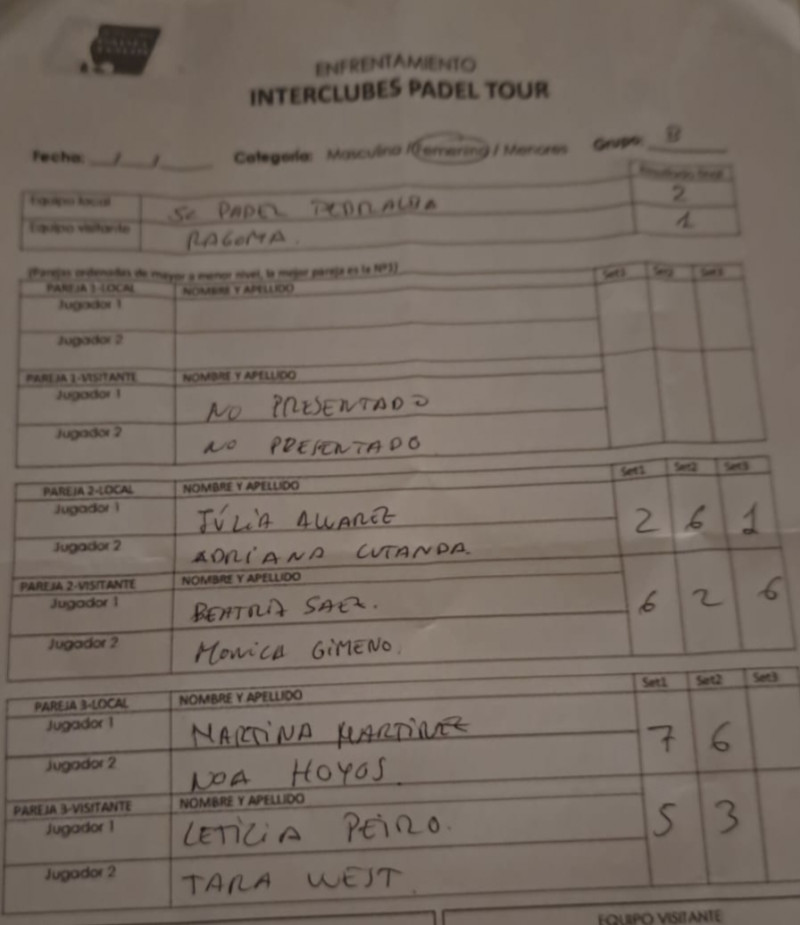 ENFRENTAMIENTO
INTERCLUBES PADEL TOUR
Fecha: __/__/____ Categoría: Masculino / Femenino / Menores Grupo: B
Resultado final
Equipo local SC PADEL PEDRALBA 2
Equipo visitante RAGOMA. 1
(Parejas ordenadas de mayor a menor nivel, la mejor pareja es la Nº1)
PAREJA 1-LOCAL NOMBRE Y APELLIDO Set1 Set2 Set3
Jugador 1
Jugador 2
PAREJA 1-VISITANTE NOMBRE Y APELLIDO
Jugador 1 NO PRESENTADO
Jugador 2 NO PRESENTADO
PAREJA 2-LOCAL NOMBRE Y APELLIDO Set1 Set2 Set3
Jugador 1 JÚLIA ALVAREZ 2 6 1
Jugador 2 ADRIANA CUTANDA.
PAREJA 2-VISITANTE NOMBRE Y APELLIDO
Jugador 1 BEATRIZ SAEZ. 6 2 6
Jugador 2 MONICA GIMENO.
PAREJA 3-LOCAL NOMBRE Y APELLIDO Set1 Set2 Set3
Jugador 1 MARTINA MARTINEZ 7 6
Jugador 2 NOA HOYOS
PAREJA 3-VISITANTE NOMBRE Y APELLIDO
Jugador 1 LETICIA PEIRO. 5 3
Jugador 2 TARA WEST.
EQUIPO VISITANTE